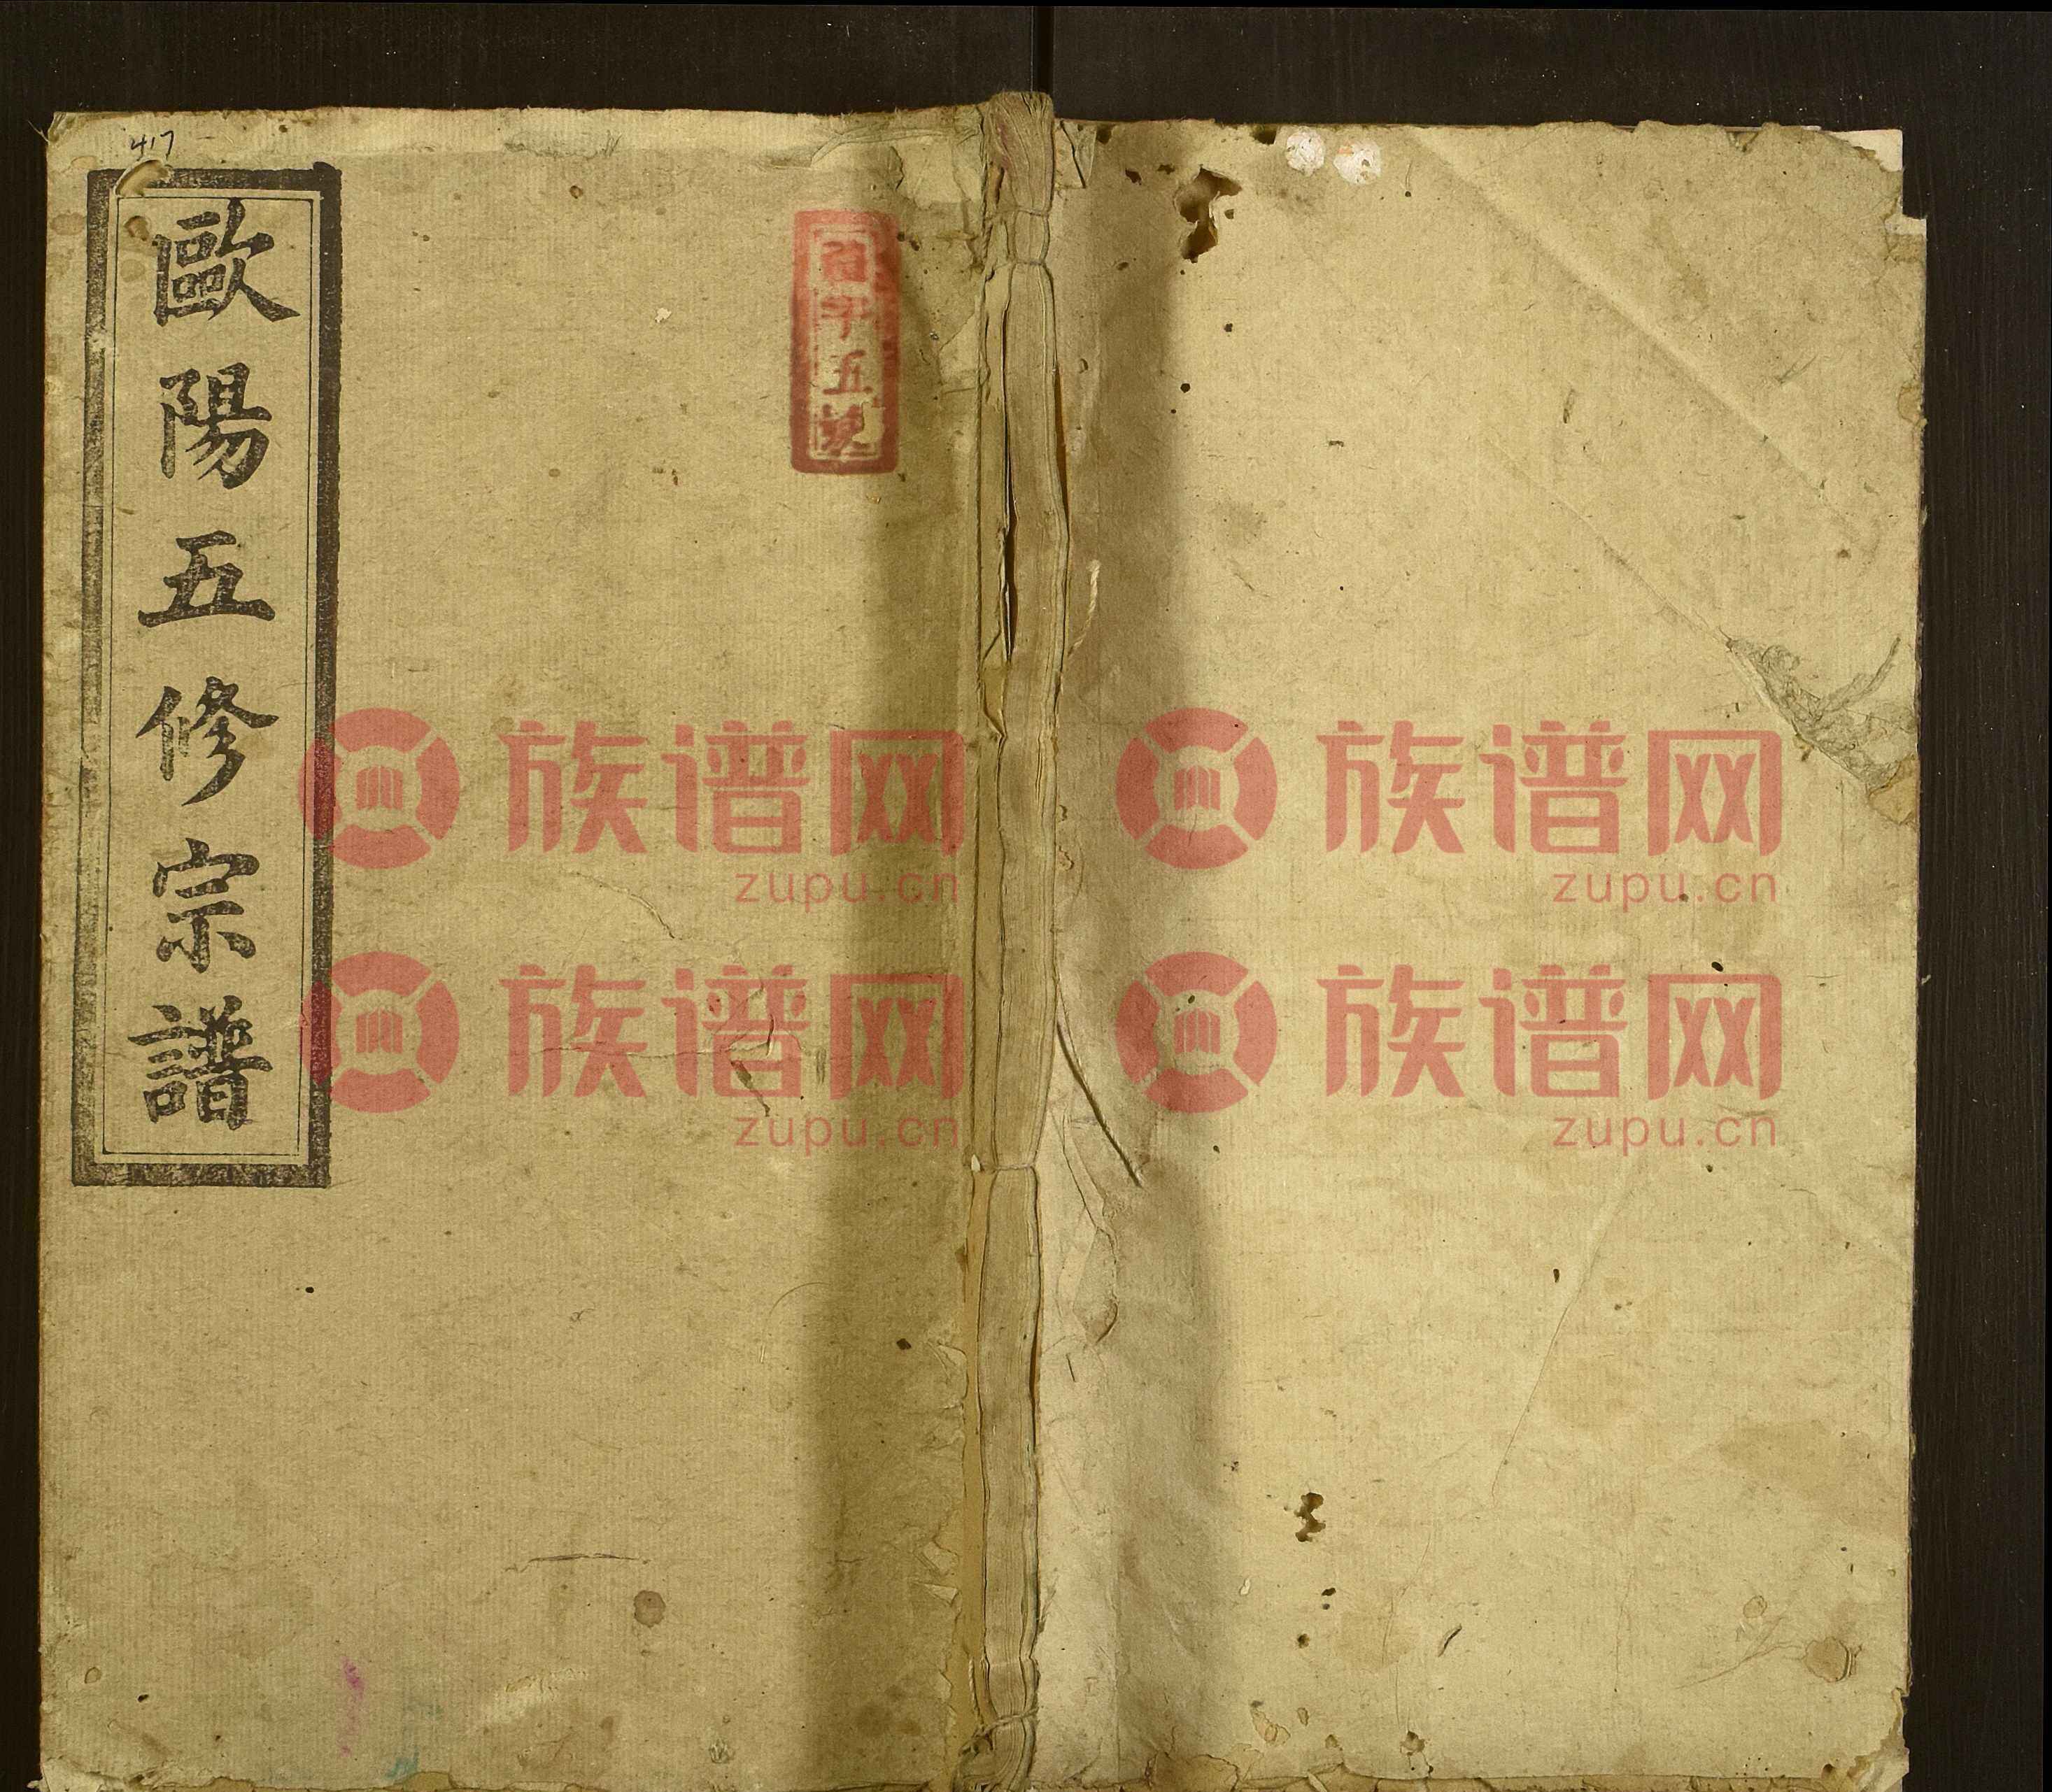 417
歐陽五修宗譜
五
族谱网
zupu.cn
族谱网
zupu.cn
族谱网
zupu.cn
族谱网
zupu.cn